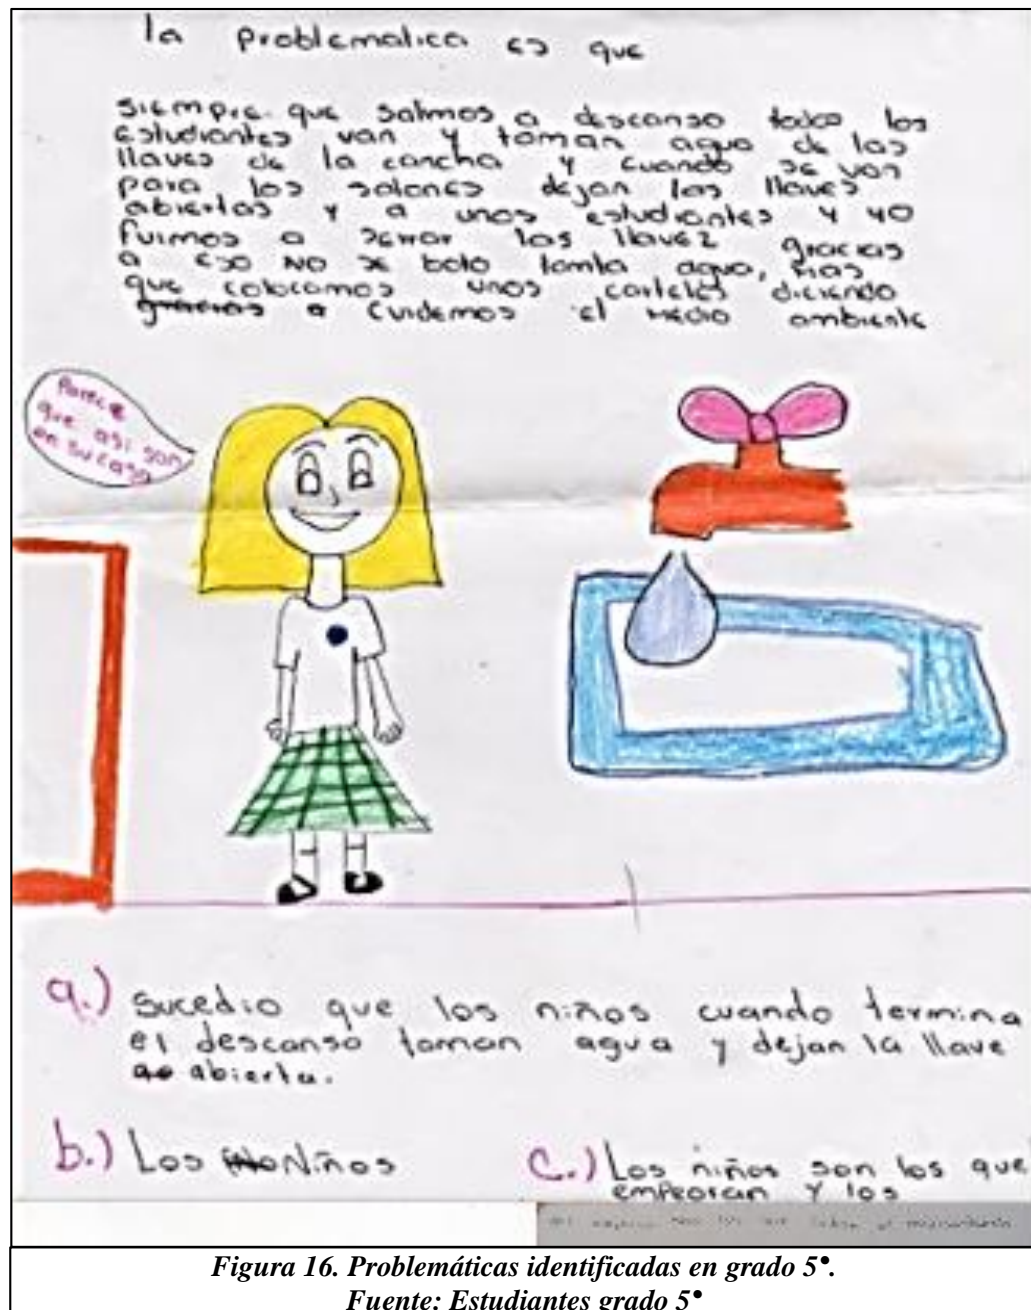 la problematica es que
siempre que salimos a descanso todos los
estudiantes van y toman agua de las
llaves de la cancha y cuando se van
para los salones dejan las llaves
abiertas y a unos estudiantes y yo
fuimos a serrar las llavez gracias
a eso NO se boto tomta agua, mas
que colocamos unos carteles diciendo
gracias a cuidemos el medio ambiente
Parece
que asi son
en su casa
a.) Sucedio que los niños cuando termina
el descanso toman agua y dejan la llave
abierta.
b.) Los Niños
C.) Los niños son los que
empeoran y los
Figura 16. Problemáticas identificadas en grado 5•.
Fuente: Estudiantes grado 5•